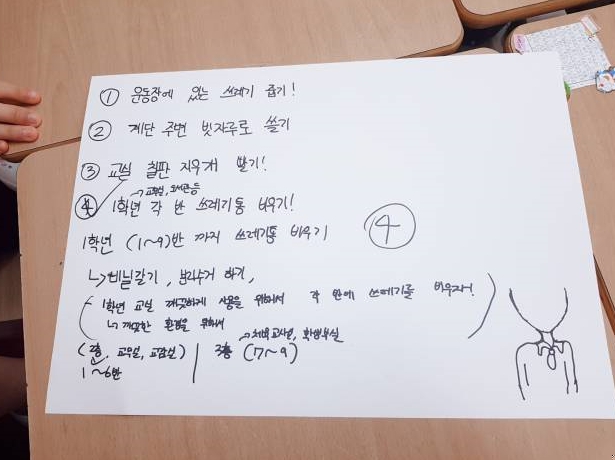 ① 운동장에 있는 쓰레기 줍기!
② 계단 주변 빗자루로 쓸기
③ 교실 칠판 지우개 털기!
→ 교무실, 도서관 등
④ 1학년 각 반 쓰레기통 비우기!
④
1학년 (1~9)반 까지 쓰레기통 비우기
↳ 비닐갈기, 분리수거 하기,
1학년 교실 깨끗하게 사용을 위해서 각 반에 쓰레기를 비우자!
↳ 깨끗한 환경을 위해서
→ 체육교사실, 학생부실
(2층, 교무실, 교장실) | 3층 (7~9)
1~6반